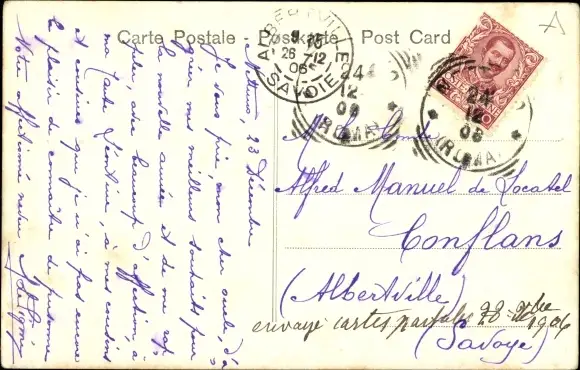 Carte Postale - Postkarte - Post Card
ALBERTVILLE
9 15
26 -12
06
SAVOIE
24
12
06
(ROMA)
24
12
06
(ROMA)
23 Décembre
Je vous prie mon cher oncle, d'a
gréer mes meilleurs souhaits pour
la nouvelle année et de me rap
peler, avec beaucoup d'affection, à
ma tante Léontine, à mes cousins
et cousines que je n'ai pas encore
le plaisir de connaître de personne
Votre affectionné neveu
Alfred Manuel de Locatel
Conflans
(Albertville)
envoyé cartes postales 28 - xbre
1906
(Savoye)